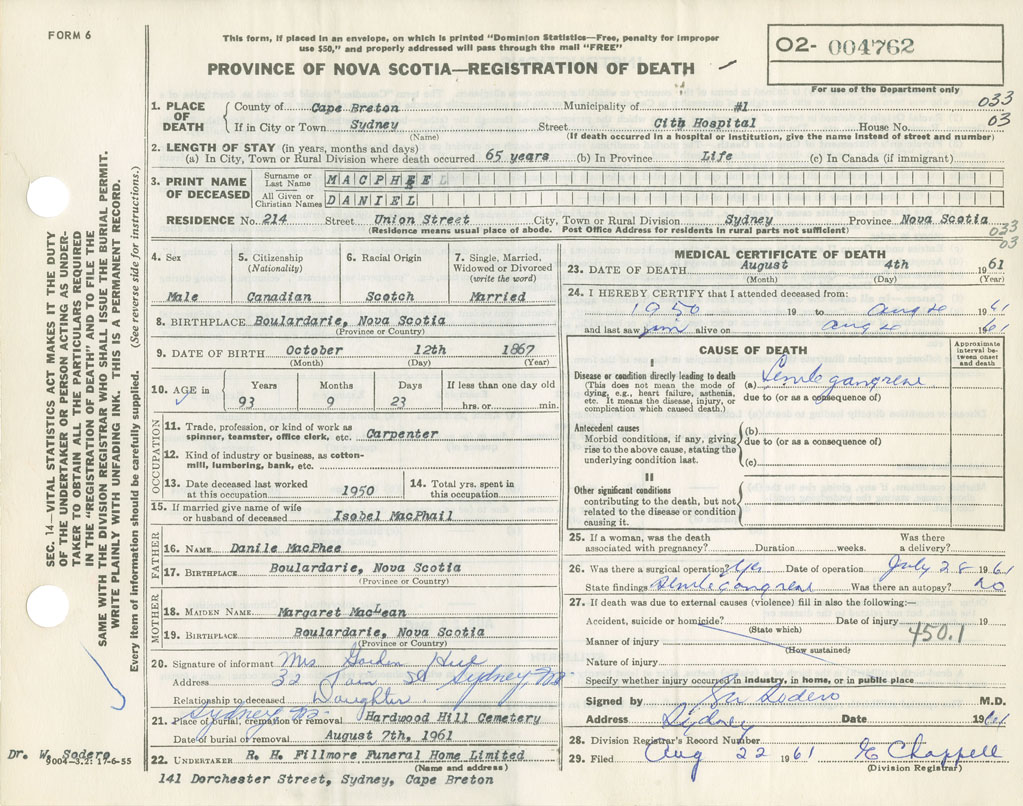 FORM 6
This form, if placed in an envelope, on which is printed "Dominion Statistics—Free, penalty for improper
use $50," and properly addressed will pass through the mail "FREE"
PROVINCE OF NOVA SCOTIA—REGISTRATION OF DEATH
O2- 004762
For use of the Department only
033
03
1. PLACE OF DEATH
County of Cape Breton Municipality of #1
If in City or Town Sydney Street Cith Hospital House No.
(Name) (If death occurred in a hospital or institution, give the name instead of street and number)
2. LENGTH OF STAY (in years, months and days)
(a) In City, Town or Rural Division where death occurred 65 years (b) In Province Life (c) In Canada (if immigrant)
3. PRINT NAME OF DECEASED
Surname or Last Name MACPHEE
All Given or Christian Names DANIEL
RESIDENCE No. 214 Street Union Street City, Town or Rural Division Sydney Province Nova Scotia
(Residence means usual place of abode. Post Office Address for residents in rural parts not sufficient)
033
03
4. Sex
Male
5. Citizenship (Nationality)
Canadian
6. Racial Origin
Scotch
7. Single, Married, Widowed or Divorced (write the word)
Married
8. BIRTHPLACE Boulardarie, Nova Scotia
(Province or Country)
9. DATE OF BIRTH October 12th 1867
(Month) (Day) (Year)
10. AGE in Years Months Days If less than one day old
93 9 23 hrs. or min.
OCCUPATION
11. Trade, profession, or kind of work as
spinner, teamster, office clerk, etc. Carpenter
12. Kind of industry or business, as cotton-
mill, lumbering, bank, etc.
13. Date deceased last worked at this occupation 1950
14. Total yrs. spent in this occupation
15. If married give name of wife
or husband of deceased Isobel MacPhail
FATHER
16. NAME Danile MacPhee
17. BIRTHPLACE Boulardarie, Nova Scotia
(Province or Country)
MOTHER
18. MAIDEN NAME Margaret MacLean
19. BIRTHPLACE Boulardarie, Nova Scotia
(Province or Country)
20. Signature of informant Mrs Gordon
Address 32 St Sydney, NS
Relationship to deceased Daughter
21. Place of burial, cremation or removal Sydney NS. Hardwood Hill Cemetery
Date of burial or removal August 7th, 1961
22. UNDERTAKER R. H. Fillmore Funeral Home Limited
(Name and address)
141 Dorchester Street, Sydney, Cape Breton
MEDICAL CERTIFICATE OF DEATH
23. DATE OF DEATH August 4th 1961
(Month) (Day) (Year)
24. I HEREBY CERTIFY that I attended deceased from:
1950 19 to aug 4 1961
and last saw him alive on aug 4 1961
CAUSE OF DEATH
Approximate interval between onset and death
I
Disease or condition directly leading to death
(This does not mean the mode of
dying, e.g., heart failure, asthenia,
etc. It means the disease, injury, or
complication which caused death.)
(a) Senile gangrene
due to (or as a consequence of)
Antecedent causes
Morbid conditions, if any, giving
rise to the above cause, stating the
underlying condition last.
(b)
due to (or as a consequence of)
(c)
II
Other significant conditions
contributing to the death, but not
related to the disease or condition
causing it.
25. If a woman, was the death Was there
associated with pregnancy? Duration weeks. a delivery?
26. Was there a surgical operation? Yes Date of operation July 28 1961
State findings Senile Gangrene Was there an autopsy? no
27. If death was due to external causes (violence) fill in also the following:—
Accident, suicide or homicide? Date of injury 19
(State which)
450.1
Manner of injury
(How sustained)
Nature of injury
Specify whether injury occurred in industry, in home, or in public place
Signed by Sodero M.D.
Address Sydney Date 1961
28. Division Registrar's Record Number
29. Filed Aug 22 1961 E Chappell
(Division Registrar)
SEC. 14—VITAL STATISTICS ACT MAKES IT THE DUTY
OF THE UNDERTAKER OR PERSON ACTING AS UNDER-
TAKER TO OBTAIN ALL THE PARTICULARS REQUIRED
IN THE "REGISTRATION OF DEATH" AND TO FILE THE
SAME WITH THE DIVISION REGISTRAR WHO SHALL ISSUE THE BURIAL PERMIT.
WRITE PLAINLY WITH UNFADING INK. THIS IS A PERMANENT RECORD.
Every item of information should be carefully supplied. (See reverse side for instructions.)
Dr. W. Sodero
9004-3.2: 17-6-55